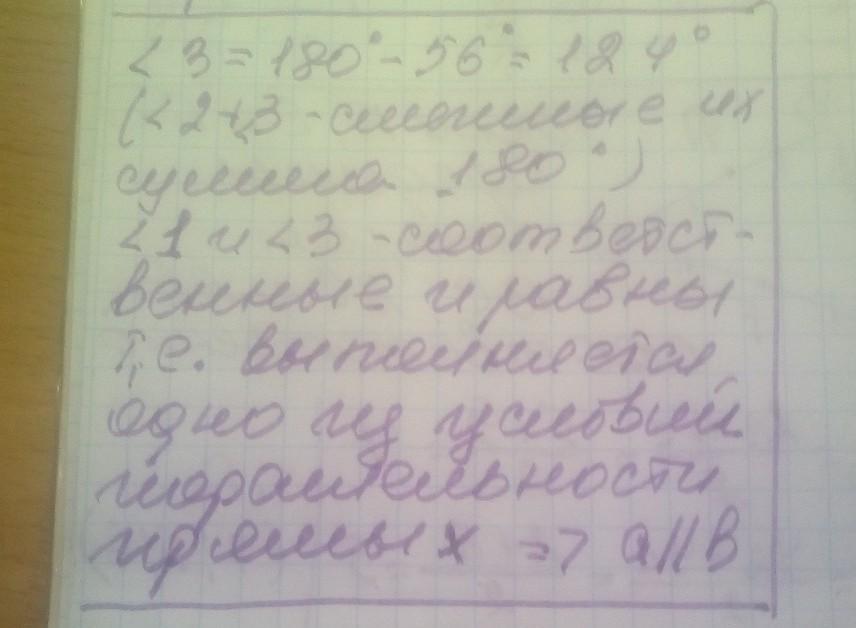 <3 = 180° - 56° = 124°
(<2 и <3 - смежные их
сумма 180°)
<1 и <3 - соответст-
венные и равны
т.е. выполняется
одно из условий
паралельности
прямых => a||b